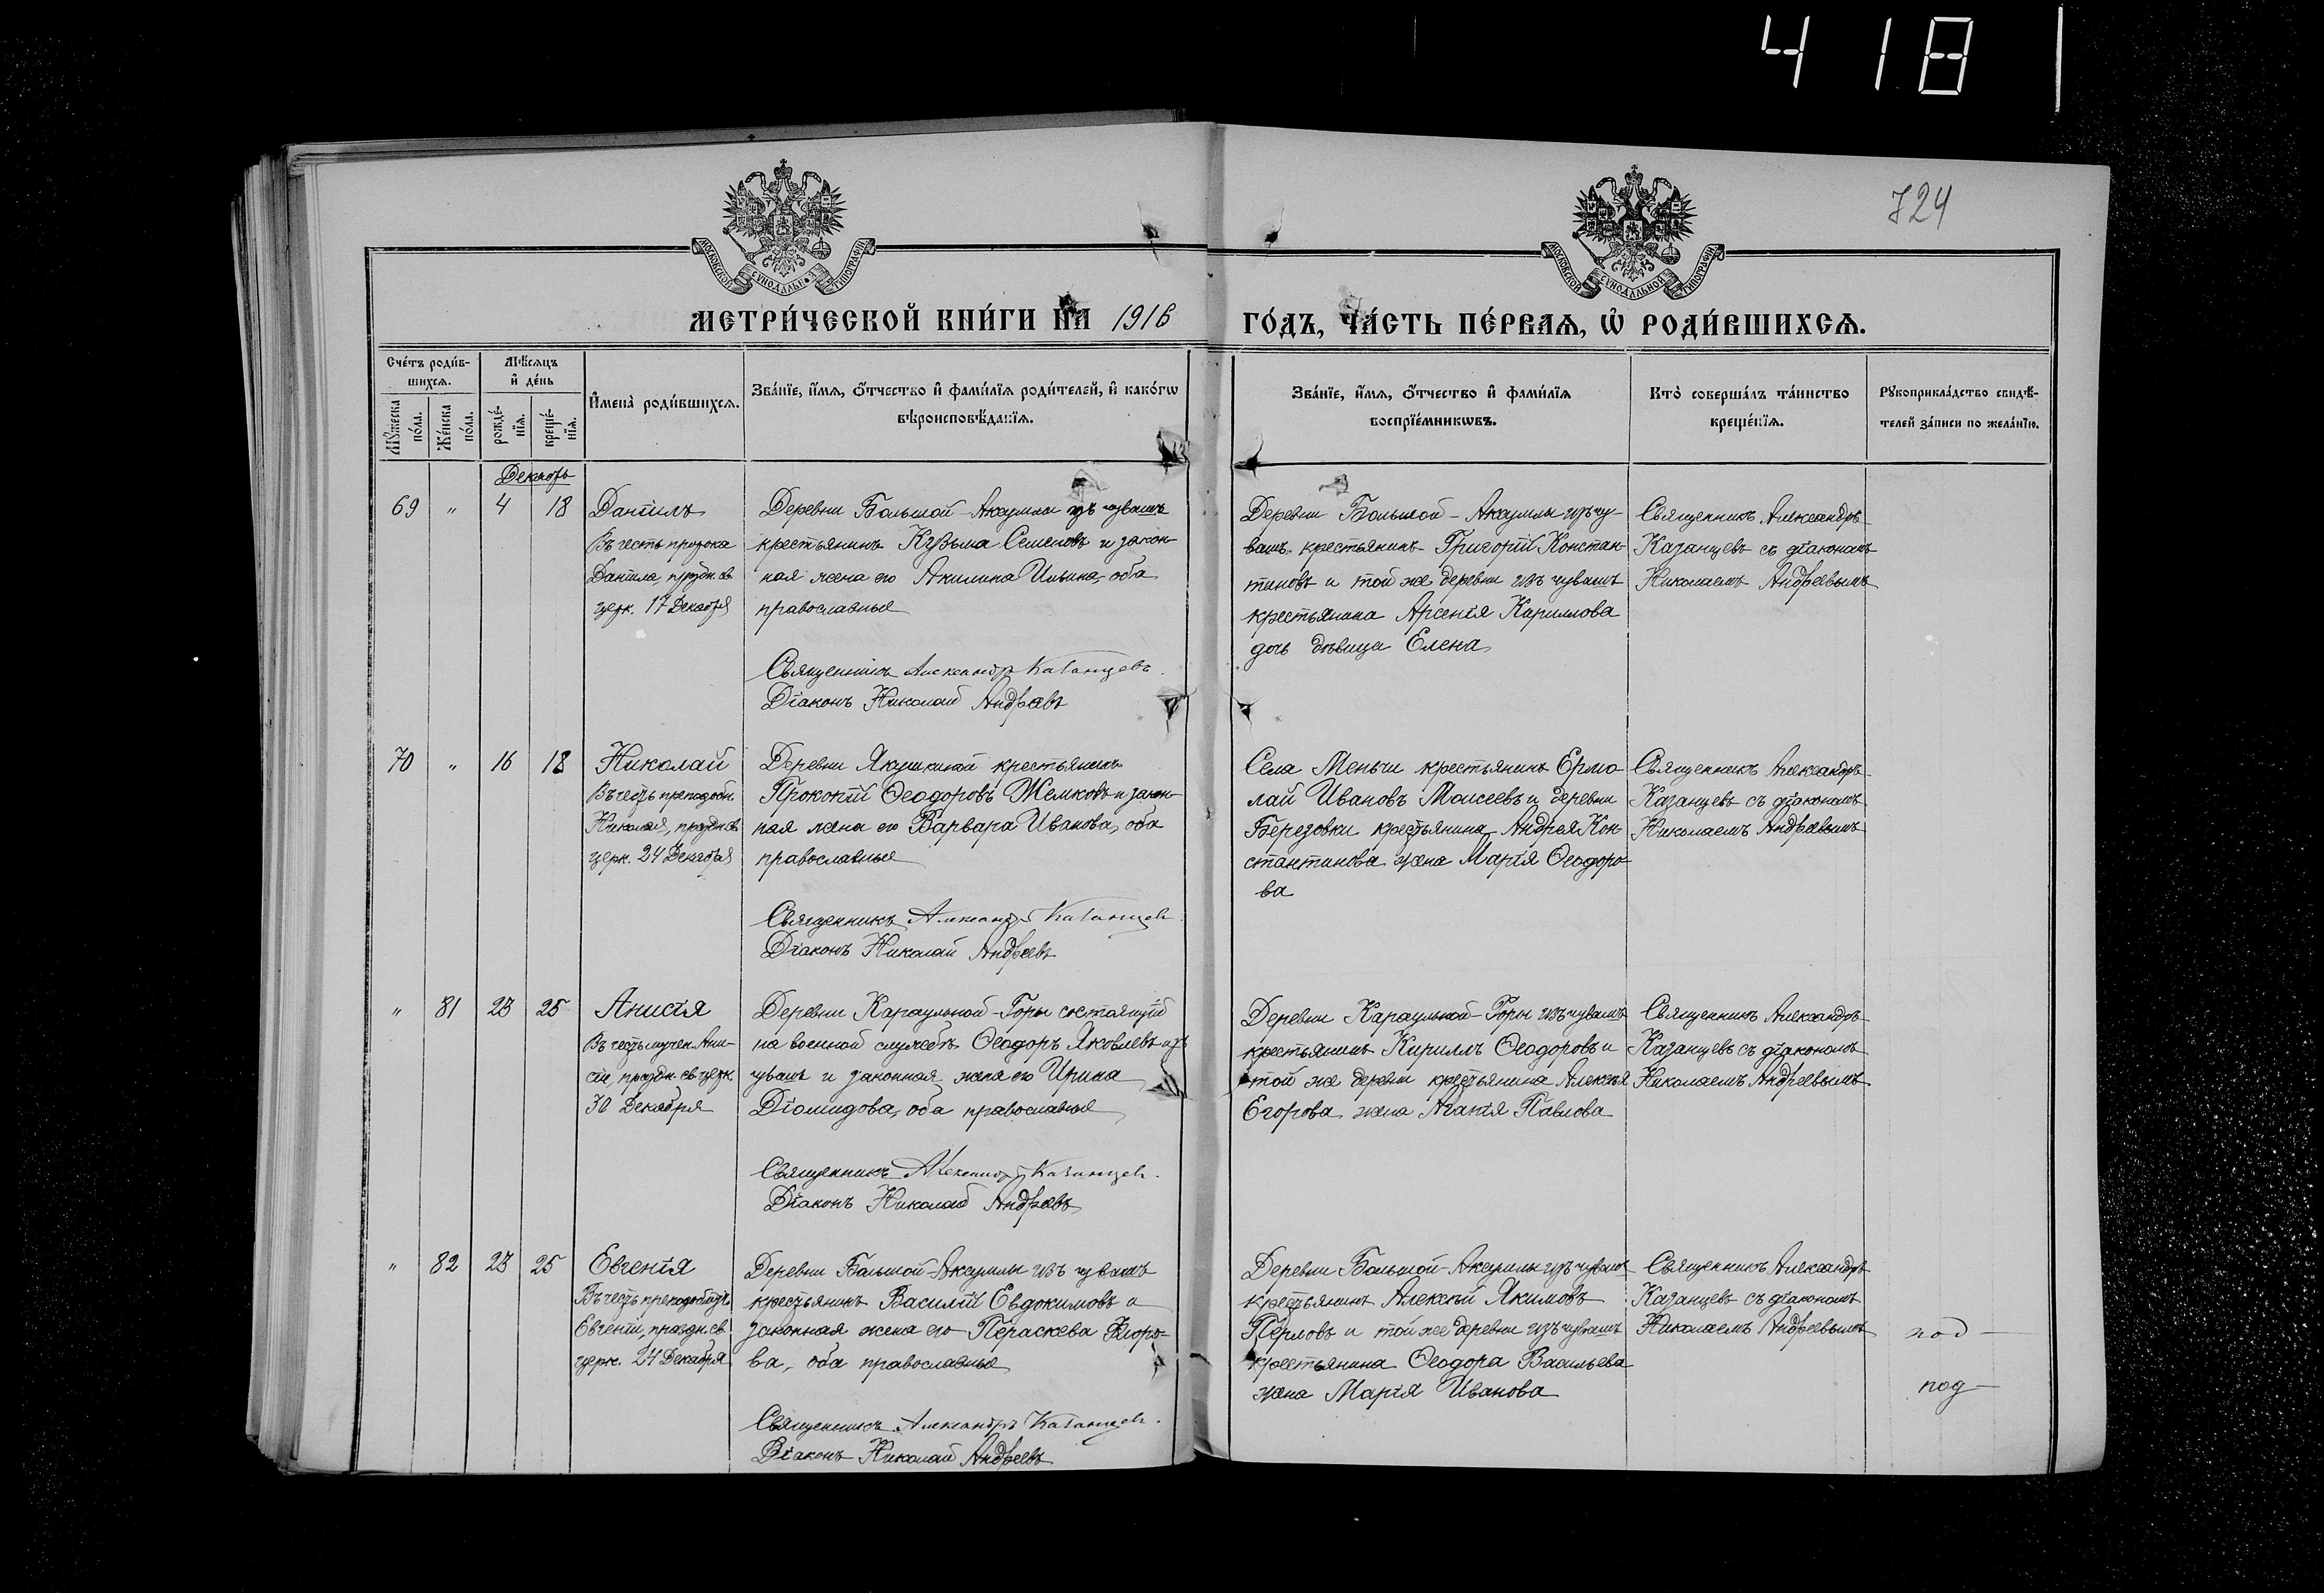 418
724
МОСКОВСКОЙ СѴНОДАЛЬНОЙ ТИПОГРАФІИ
МОСКОВСКОЙ СѴНОДАЛЬНОЙ ТИПОГРАФІИ
МЕТРИ́ЧЕСКОЙ КНИ́ГИ НА 1916
ГО́ДЪ, ЧА́СТЬ ПЕ́РВАѦ, Ѡ҆ РОДИ́ВШИХСѦ.
Сче́тъ роди́в-
шихсѧ.
Мꙋ́жеска
по́ла.
Же́нска
по́ла.
Мѣ́сѧцъ
и҆ де́нь
рожде́-
нїѧ.
креще́-
нїѧ.
И҆мена̀ роди́вшихсѧ.
Зва́нїе, и҆́мѧ, ѻ҆́тчество и҆ фами́лїѧ роди́телей, и҆ како́гѡ
вѣроисповѣ́данїѧ.
Зва́нїе, и҆́мѧ, ѻ҆́тчество и҆ фами́лїѧ
воспрїе́мникѡвъ.
Кто̀ соверша́лъ та́инство
креще́нїѧ.
Рꙋкоприкла́дство свидѣ́-
телей за́писи по жела́нїю.
Декабрь
69 " 4 18
Даніилъ
Въ честь пророка
Даніила, праздн. св.
церк. 17 Декабря
Деревни Большой-Аксумлы изъ чувашъ
крестьянинъ Кузьма Семеновъ и закон-
ная жена его Акилина Ильина, оба
православные
Священникъ Александръ Казанцевъ.
Діаконъ Николай Андреевъ
Деревни Большой-Аксумлы изъ чу-
вашъ крестьянинъ Григорій Констан-
тиновъ и той же деревни изъ чувашъ
крестьянина Арсенія Кириллова
дочь дѣвица Елена
Священникъ Александръ
Казанцевъ съ діакономъ
Николаемъ Андреевымъ
70 " 16 18
Николай
Въ честь преподобн.
Николая, праздн. св.
церк. 24 Декабря
Деревни Якушкиной крестьянинъ
Прокопій Ѳеодоровъ Жемковъ и закон-
ная жена его Варвара Иванова, оба
православные
Священникъ Александръ Казанцевъ.
Діаконъ Николай Андреевъ
Села Меньчи крестьянинъ Ермо-
лай Ивановъ Моисеевъ и деревни
Березовки крестьянина Андрея Кон-
стантинова жена Марія Ѳеодоро-
ва
Священникъ Александръ
Казанцевъ съ діакономъ
Николаемъ Андреевымъ
" 81 23 25
Анисія
Въ честь мучен. Ани-
сіи, праздн. св. церк.
30 Декабря
Деревни Караульной-Горы состоящій
на военной службѣ Ѳеодоръ Яковлевъ изъ
чувашъ и законная жена его Ирина
Діомидова, оба православные
Священникъ Александръ Казанцевъ.
Діаконъ Николай Андреевъ
Деревни Караульной-Горы изъ чувашъ
крестьянинъ Кириллъ Ѳеодоровъ и
той же деревни крестьянина Алексѣя
Егорова жена Агапія Павлова
Священникъ Александръ
Казанцевъ съ діакономъ
Николаемъ Андреевымъ
" 82 23 25
Евгенія
Въ честь преподобномуч.
Евгеніи, праздн. св.
церк. 24 Декабря
Деревни Большой-Аксумлы изъ чувашъ
крестьянинъ Василій Евдокимовъ и
законная жена его Пераскева Флоро-
ва, оба православные
Священникъ Александръ Казанцевъ.
Діаконъ Николай Андреевъ
Деревни Большой-Аксумлы изъ чувашъ
крестьянинъ Алексѣй Якимовъ
Перловъ и той же деревни изъ чувашъ
крестьянина Ѳеодора Васильева
жена Марія Иванова
Священникъ Александръ
Казанцевъ съ діакономъ
Николаемъ Андреевымъ
под
под